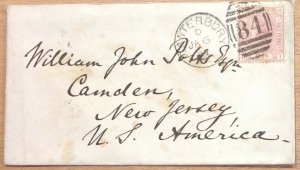 CANTERBURY
D
84
William John Potts Esqr
Camden,
New Jersey,
U.S. America.